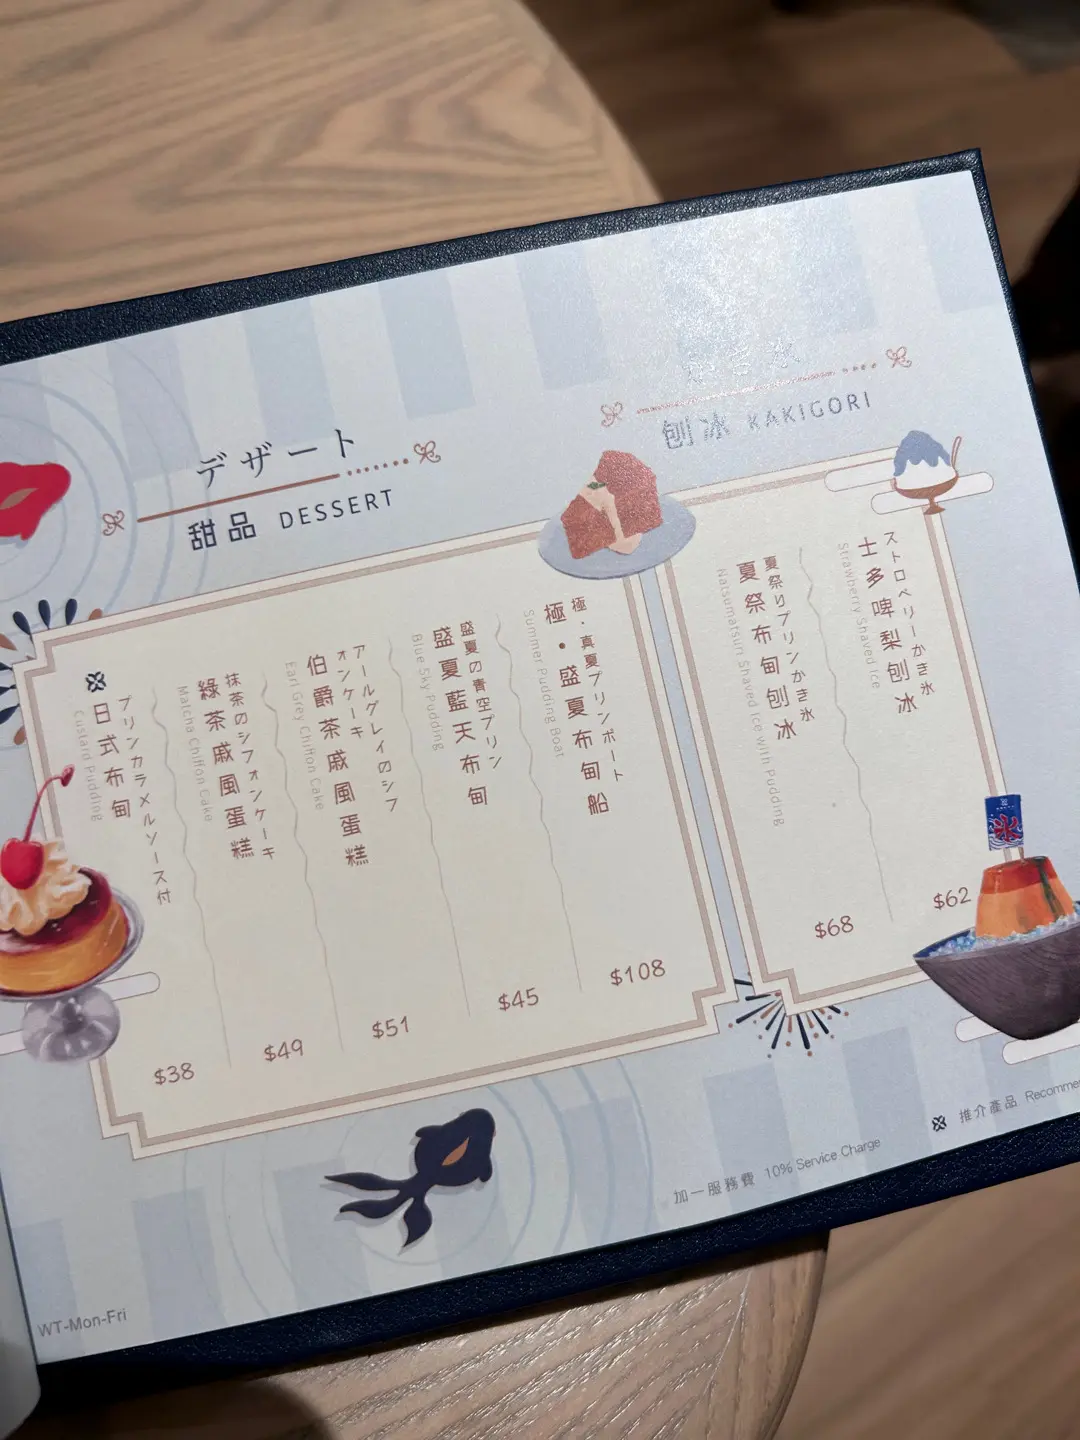 デザート
甜品 DESSERT
かき氷
刨冰 KAKIGORI
極・真夏プリンボート
極・盛夏布甸船
Summer Pudding Boat
$108
盛夏の青空プリン
盛夏藍天布甸
Blue Sky Pudding
$45
アールグレイのシフ
ォンケーキ
伯爵茶戚風蛋糕
Earl Grey Chiffon Cake
$51
抹茶のシフォンケーキ
綠茶戚風蛋糕
Matcha Chiffon Cake
$49
プリンカラメルソース付
日式布甸
Custard Pudding
$38
ストロベリーかき氷
士多啤梨刨冰
Strawberry Shaved Ice
$62
夏祭りプリンかき氷
夏祭布甸刨冰
Natsumatsuri Shaved Ice with Pudding
$68
氷
推介產品 Recomme
加一服務費 10% Service Charge
WT-Mon-Fri